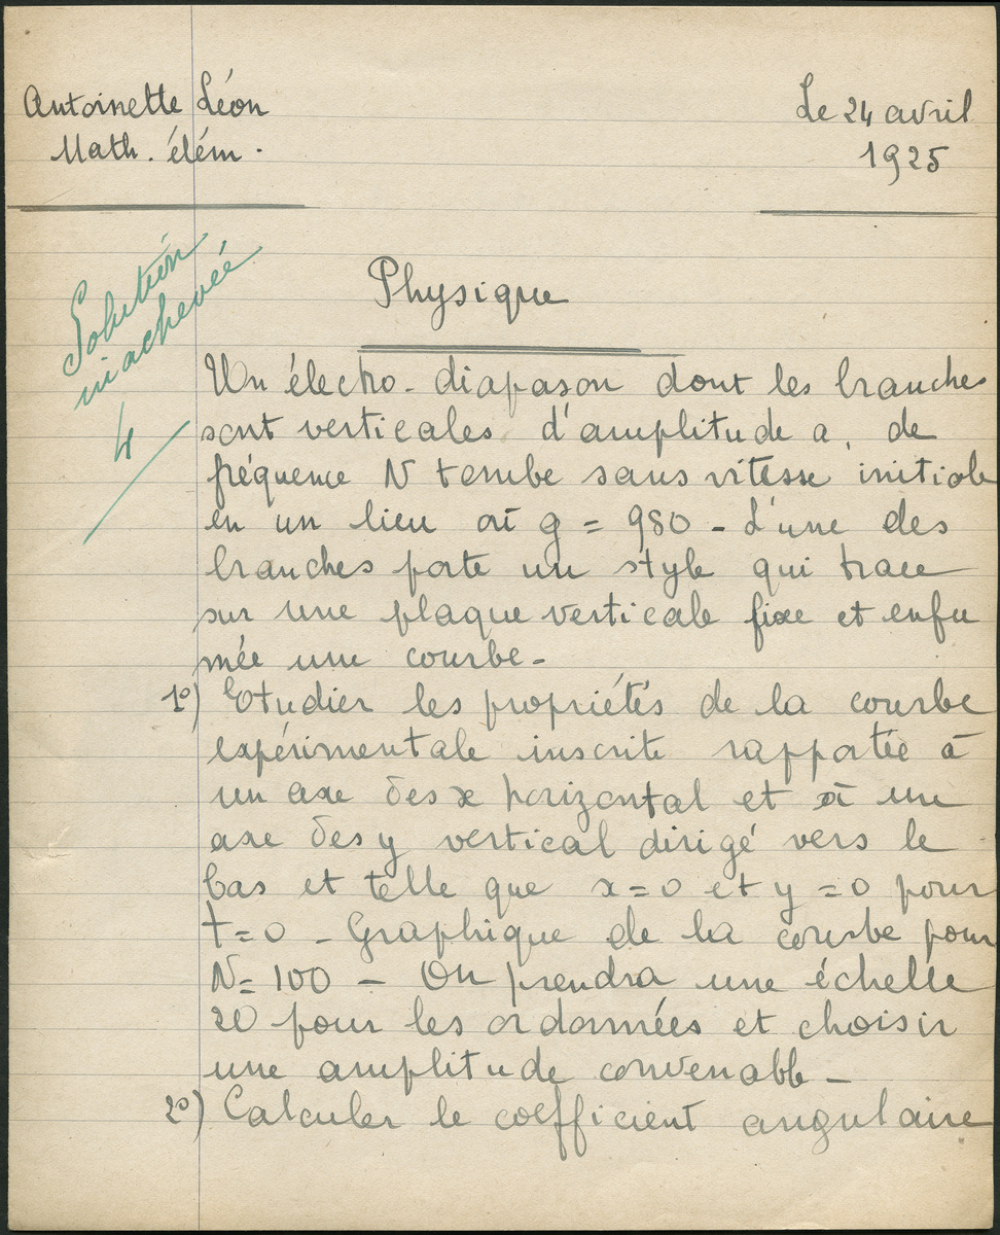 Antoinette Léon
Le 24 avril
Math. élém.
1925
Solution
inachevée
4
Physique
Un électro-diapason dont les branches
sont verticales d'amplitude a, de
fréquence N tombe sans vitesse initiale
en un lieu où g = 980 - L'une des
branches porte un style qui trace
sur une plaque verticale fixe et enfu
mée une courbe-
1°) Etudier les propriétés de la courbe
expérimentale inscrite rapportée à
un axe des x horizontal et à un
axe des y vertical dirigé vers le
bas et telle que x=0 et y=0 pour
t=0 - Graphique de la courbe pour
N=100 - On prendra une échelle
20 pour les ordonnées et choisir
une amplitude convenable -
2°) Calculer le coefficient angulaire